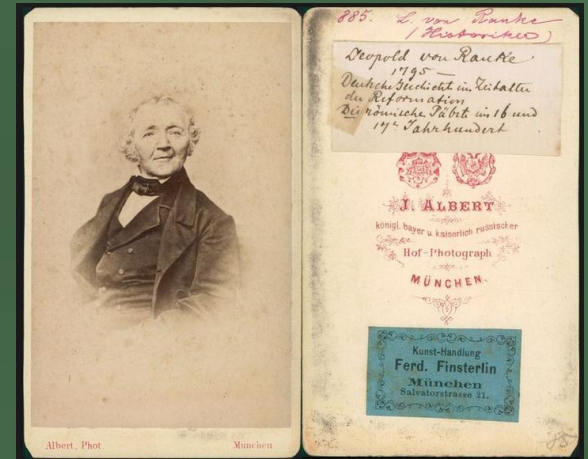 Albert, Phot.
München
885. L. von Ranke
(Historiker)
Leopold von Ranke
1795 —
Deutsche Geschichte im Zeitalter
der Reformation
Die römische Päbste im 16 und
17ᵗ Jahrhundert
J. ALBERT
königl. bayer u. kaiserlich russischer
Hof-Photograph
MÜNCHEN.
Kunst-Handlung
Ferd. Finsterlin
München
Salvatorstrasse 21.